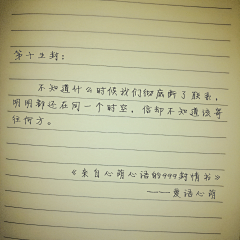 第十五封：
不知道什么时候我们彻底断了联系，
明明都还在同一个时空，信却不知道该寄
往何方。
《来自心萌心语的999封情书》
——爱语心萌